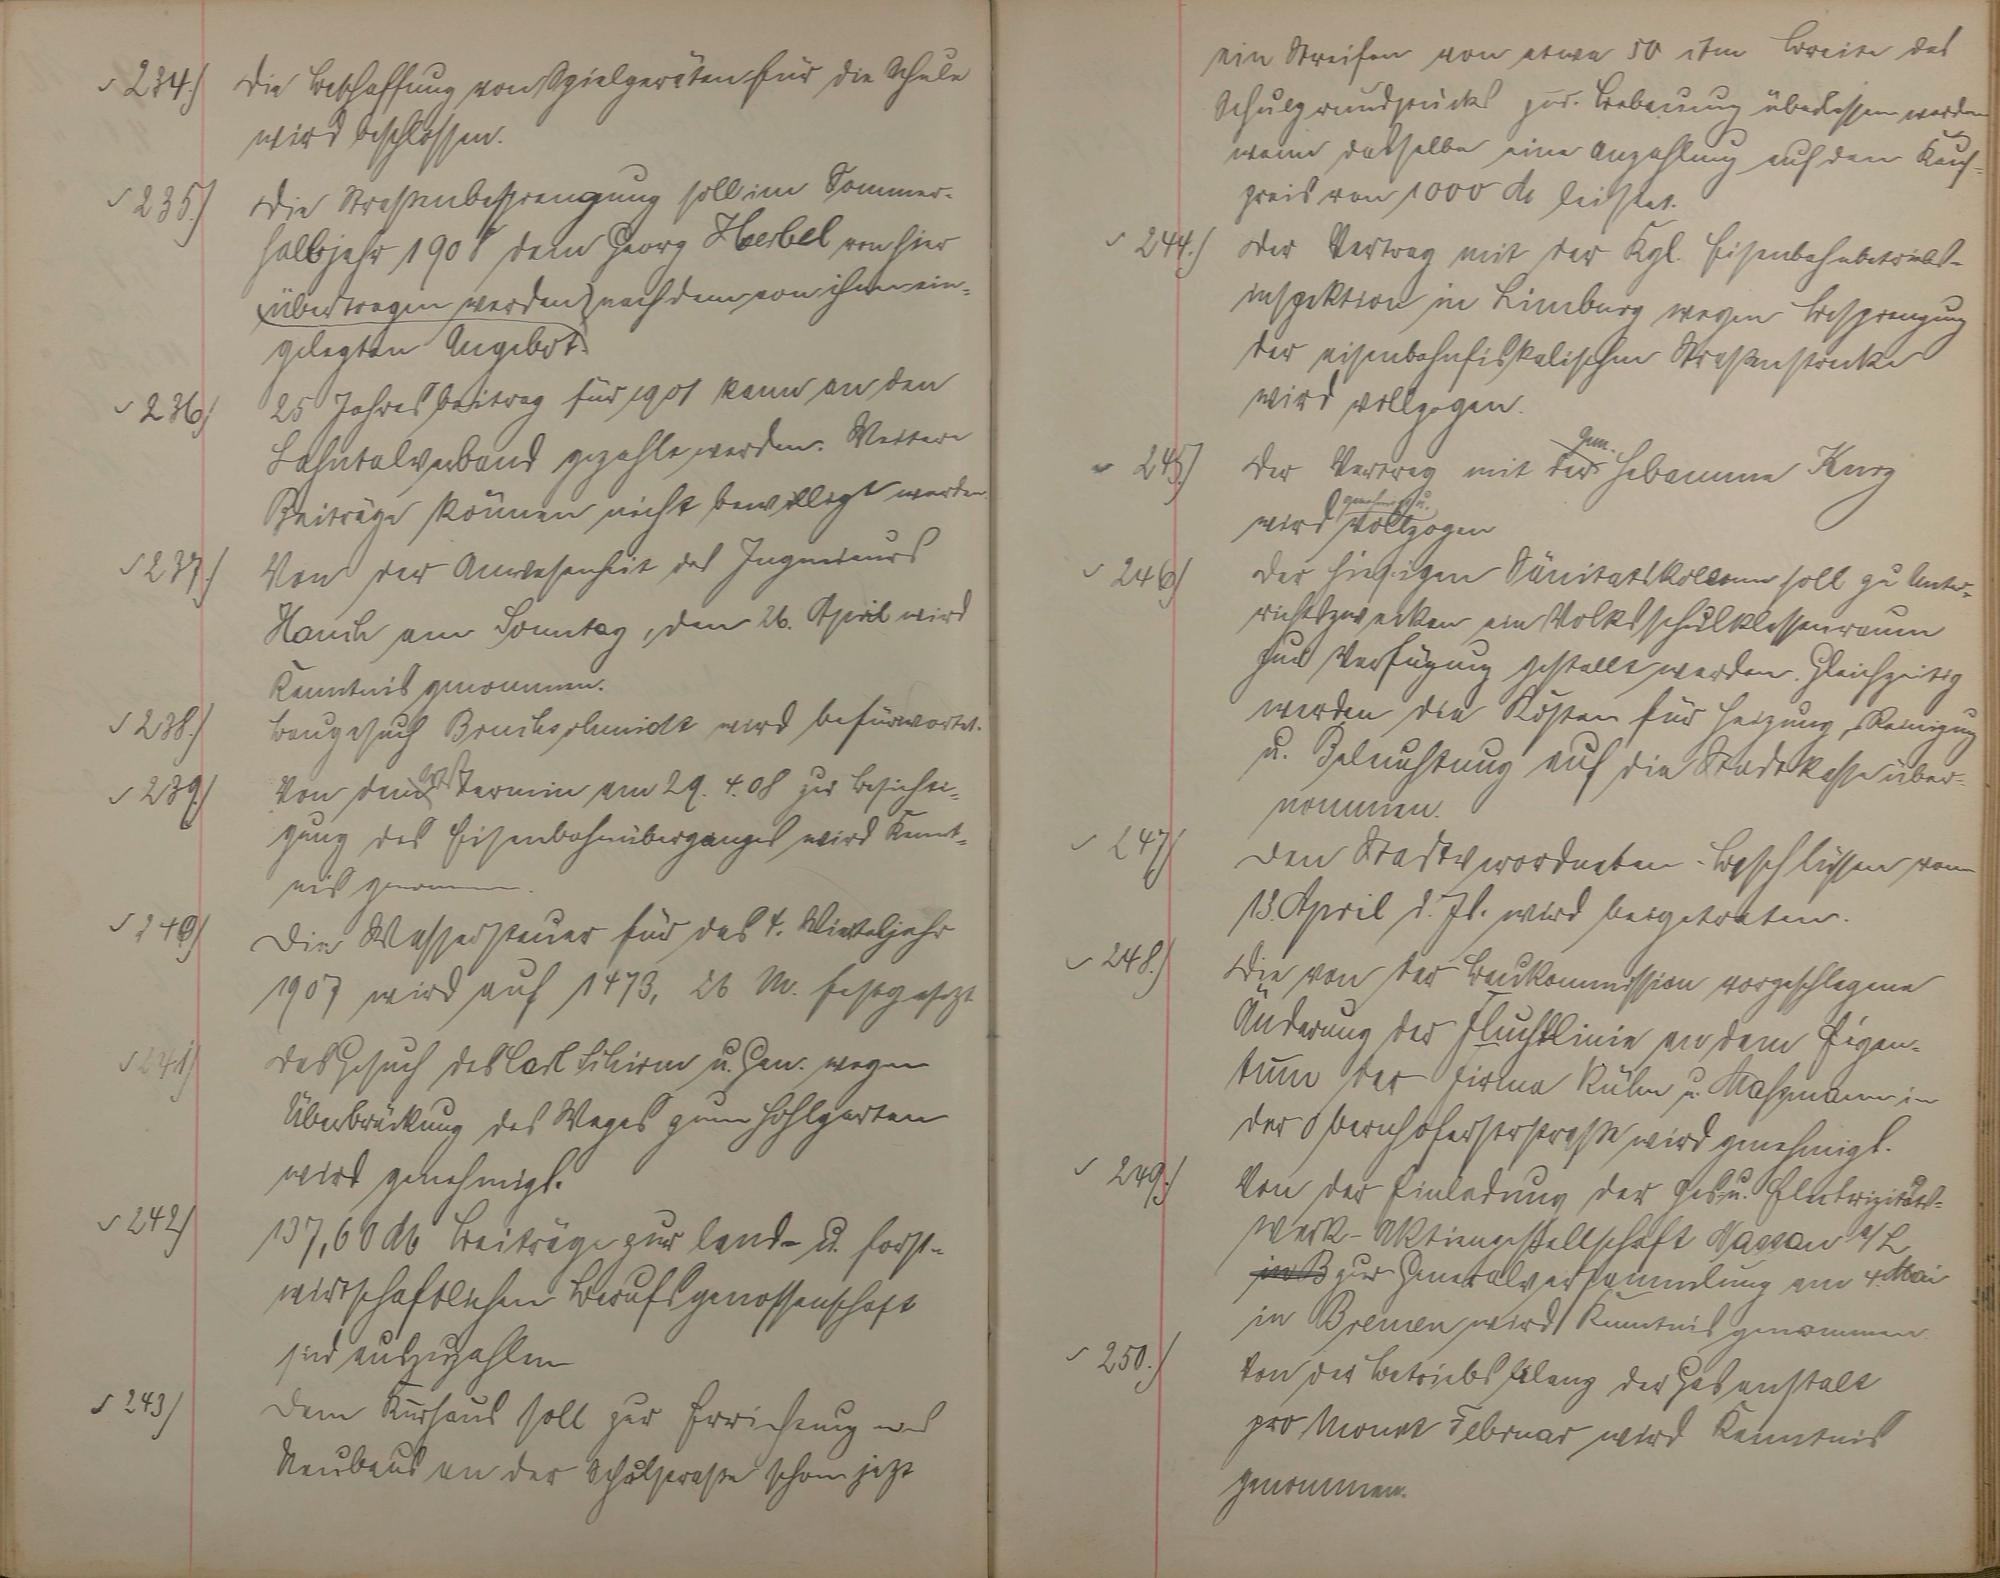 234.) Die Beschaffung von Spielgeräten für die Schule
wird beschlossen.
235.) Die Straßenbesprengung soll im Sommer-
halbjahr 1908 dem Georg Herbel von hier
(übertragen werden) nach dem von ihm ein-
gelegten Angebot.
236) 25 Jahresbeitrag für 1908 kann an den
Lahntalverband gezahlt werden. Weitere
Beiträge können nicht bewilligt werden.
237.) Von der Anwesenheit des Ingenieurs
am Sonntag, den 26. April wird
Kenntnis genommen.
238.) Baugesuch Bruchschmidt wird befürwortet.
239.) Von dem Termin am 29. 4. 08 zur Besichti-
gung des Eisenbahnüberganges wird Kennt-
nis genommen.
240) Die Wassersteuer für das 4. Vierteljahr
1907 wird auf 1473, 26 M. festgesetzt
241) Das Gesuch des Carl u. Gen. wegen
Überbrückung des Weges zum Hohlgarten
wird genehmigt.
242) 137,60 M Beiträge zur land- u. forst-
wirtschaftlichen Berufsgenossenschaft
sind auszuzahlen
243) Dem Kurhaus soll zur Errichtung des
Neubaus an der Schulstraße schon jetzt
ein Streifen von etwa 50 ctm Breite des
Schulgrundstücks zur Bebauung überlassen werden
wenn dasselbe eine Anzahlung auf den Kauf-
preis von 1000 M leistet.
244.) Der Vertrag mit der Kgl. Eisenbahnbetriebs-
inspektion in Limburg wegen Besprengung
der eisenbahnfiskalischen Straßenstrecke
wird vollzogen.
245) Der Vertrag mit der Gem. Hebamme Kurz
wird genehmigt u. vollzogen
246) Der hiesigen Sanitätskolonne soll zu Unter-
richtszwecken ein Volksschulklassenraum
zur Verfügung gestellt werden. Gleichzeitig
werden die Kosten für Heizung, Reinigung
u. Beleuchtung auf die Stadtkasse über-
nommen.
247) Den Stadtverordneten-Beschlüssen vom
13. April d. Js. wird beigetreten.
248.) Die von der Baukommission vorgeschlagene
Änderung der Fluchtlinie an dem Eigen-
tum der Firma Kühn u. in
der Obernhoferstrstraße wird genehmigt.
249.) Von der Einladung der Gas- u. Elektrizitäts-
werk-Aktiengesellschaft Nassau a/L
in B zur Generalversammlung am 4. Mai
in Bremen wird Kenntnis genommen.
250.) Von der Betriebsbilanz der Gasanstalt
pro Monat Februar wird Kenntnis
genommen.